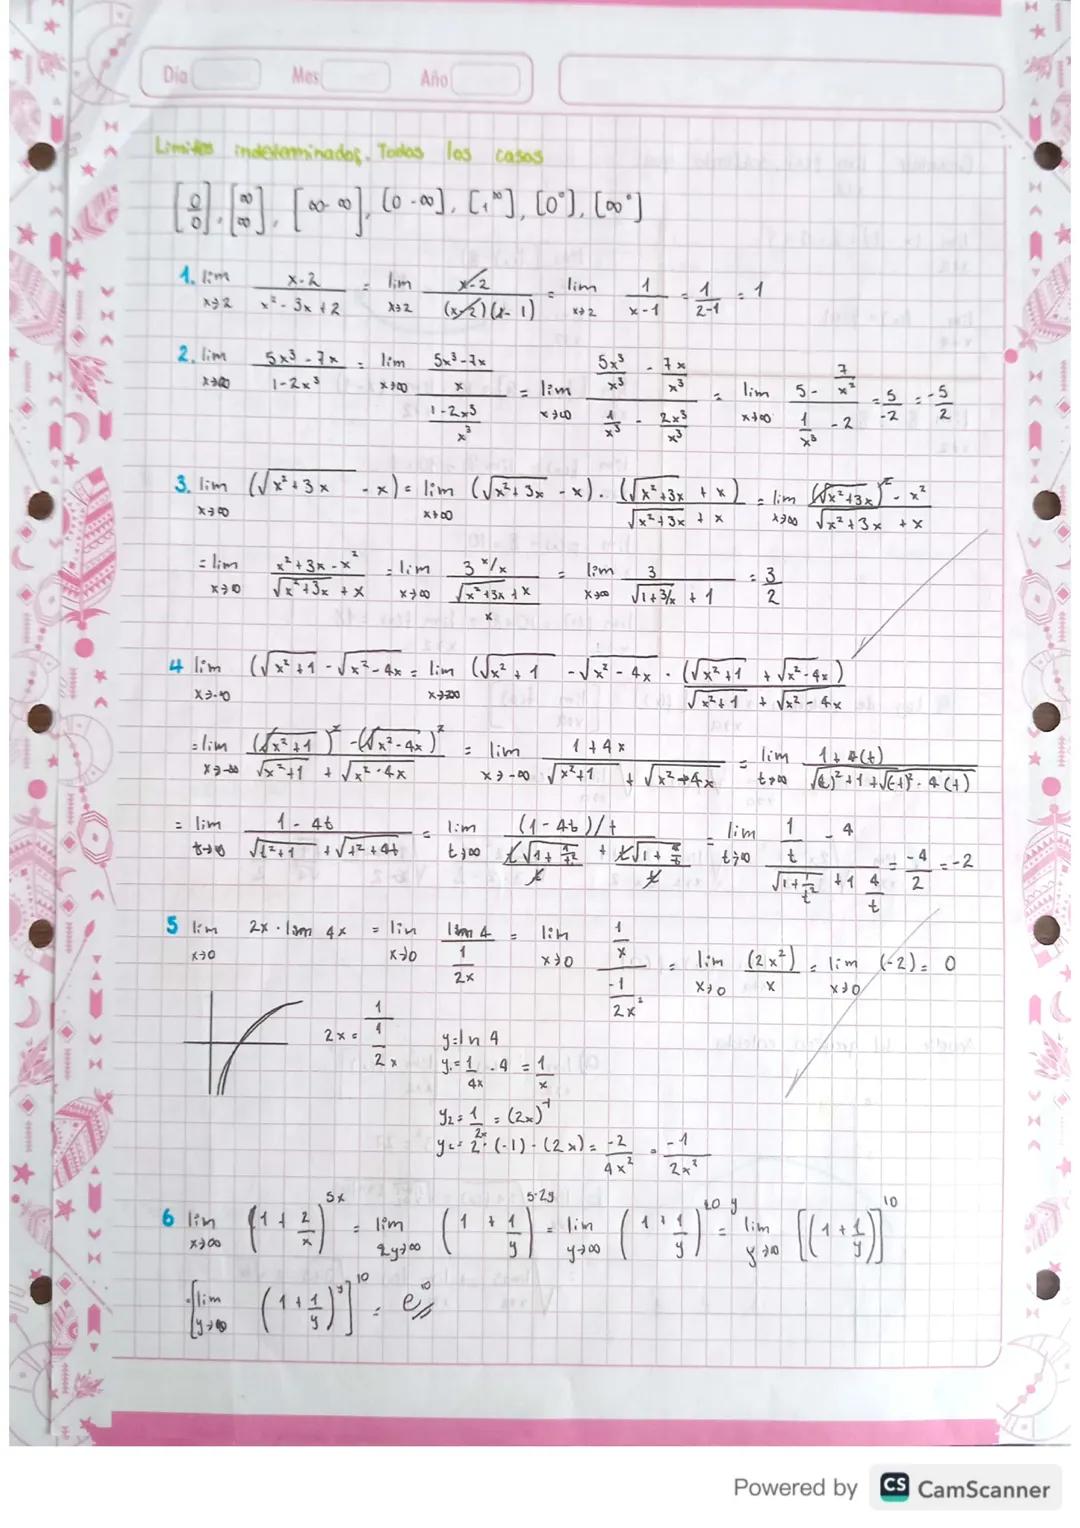 Día Mes Año
Limites indeterminados. Todos los casos
[0/0], [∞/∞], [∞-∞], [0-∞], [1^∞], [0°], [∞°]
1. lim x→2 (x-2)/(x²-3x+2) = lim x→2 (x-2)/((x-2)(x-1)) = lim x→2 1/(x-1) = 1/(2-1) = 1
2. lim x→∞ (5x³-7x)/(1-2x³) = lim x→∞ ((5x³-7x)/x)/((1-2x³)/x³) = lim x→∞ (5x³/x³ - 7x/x³)/(1/x³ - 2x³/x³) = lim x→∞ (5 - 7/x²)/(1/x³ - 2) = 5/-2 = -5/2
3. lim x→∞ (√(x²+3x) - x) = lim x→∞ (√(x²+3x) - x) · (√(x²+3x) + x)/(√(x²+3x) + x) = lim x→∞ ((√(x²+3x))² - x²)/(√(x²+3x) + x)
= lim x→∞ (x²+3x-x²)/(√(x²+3x) + x) = lim x→∞ (3x/x)/((√(x²+3x) + x)/x) = lim x→∞ 3/(√(1+3/x) + 1) = 3/2
4 lim x→-∞ (√(x²+1) - √(x²-4x) = lim x→-∞ (√(x²+1) - √(x²-4x) · (√(x²+1) + √(x²-4x))/(√(x²+1) + √(x²-4x)
= lim x→-∞ ((√(x²+1))² - (√(x²-4x))²)/(√(x²+1) + √(x²-4x)) = lim x→-∞ (1+4x)/(√(x²+1) + √(x²-4x)) = lim t→∞ (1+4(t))/(√((t)²+1) + √((-t)²-4(t)))
= lim t→∞ (1-4t)/(√(t²+1) + √(t²+4t)) = lim t→∞ ((1-4t)/t)/((t√(1+1/t²))/t + (t√(1+4/t))/t) = lim t→∞ (1/t - 4)/(√(1+1/t²) + 1 4/t) = -4/2 = -2
5 lim x→0 2x · lim 4x = lim x→0 (lim 4)/(1/2x) = lim x→0 (1/x)/(-1/2x²) = lim x→0 (2x²)/x = lim x→0 (-2) = 0
2x = 1/(1/2x)
y=ln 4
y.= 1/4x . 4 = 1/x
y2= 1/2x = (2x)^-1
y2= 2·(-1)-(2x) = -2/4x² = -1/2x²
6 lim x→∞ (1 + 2/x)^5x = lim 2y→∞ (1 + 1/y)^5·2y = lim y→∞ (1 + 1/y)^10y = lim y→∞ [(1 + 1/y)]^10
[lim y→∞ (1 + 1/y)^y]^10 = e^10
Powered by CS CamScanner